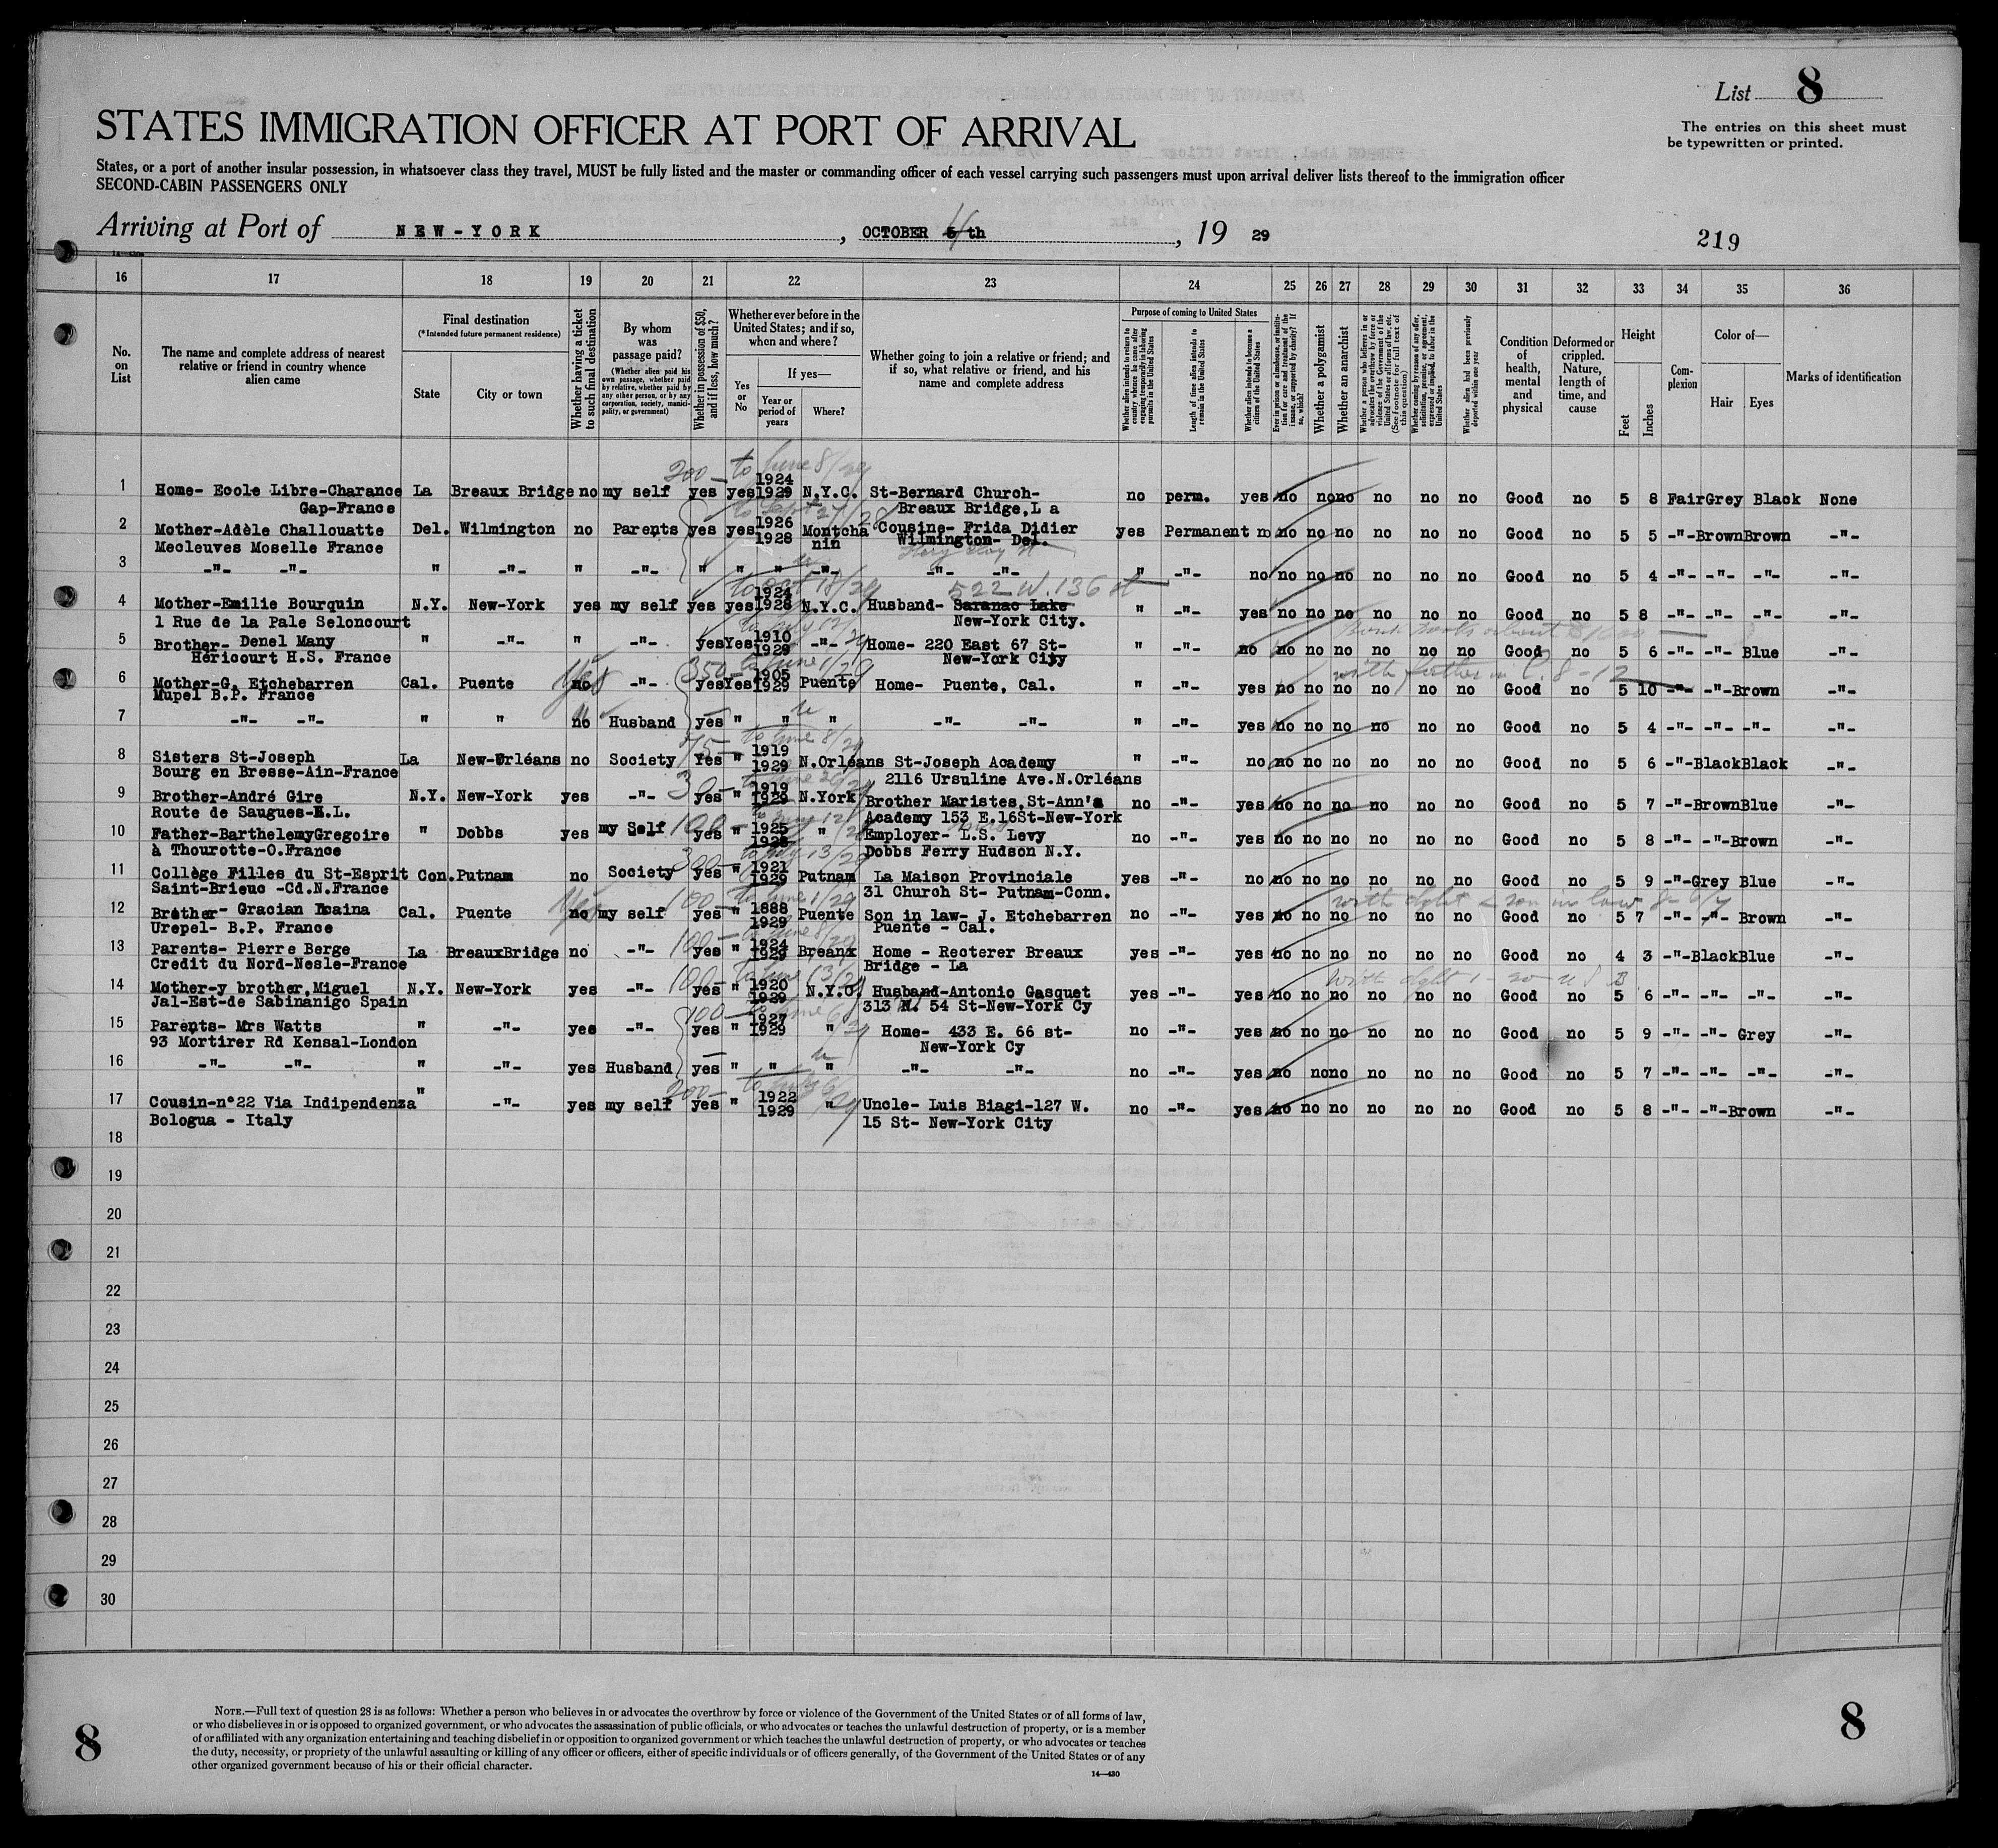 List 8
The entries on this sheet must
be typewritten or printed.
STATES IMMIGRATION OFFICER AT PORT OF ARRIVAL
States, or a port of another insular possession, in whatsoever class they travel, MUST be fully listed and the master or commanding officer of each vessel carrying such passengers must upon arrival deliver lists thereof to the immigration officer
SECOND-CABIN PASSENGERS ONLY
Arriving at Port of NEW-YORK, OCTOBER th, 19 29
219
16 17 18 19 20 21 22 23 24 25 26 27 28 29 30 31 32 33 34 35 36
No. on List
The name and complete address of nearest relative or friend in country whence alien came
Final destination
(*Intended future permanent residence)
State
City or town
Whether having a ticket to such final destination
By whom was passage paid?
(Whether alien paid his own passage, whether paid by relative, whether paid by any other person, or by any corporation, society, municipality, or government)
Whether in possession of $50, and if less, how much?
Whether ever before in the United States; and if so, when and where?
Yes or No
If yes—
Year or period of years
Where?
Whether going to join a relative or friend; and if so, what relative or friend, and his name and complete address
Purpose of coming to United States
Length of time alien intends to remain in the United States
Whether alien intends to become a citizen of the United States
Whether a polygamist
Whether an anarchist
Condition of health, mental and physical
Deformed or crippled. Nature, length of time, and cause
Height
Feet
Inches
Complexion
Color of—
Hair
Eyes
Marks of identification
1 Home- Ecole Libre-Charance La Breaux Bridge no my self yes yes 1924 1929 N.Y.C. St-Bernard Church- no perm. yes no no no no no no Good no 5 8 Fair Grey Black None
Gap-France Breaux Bridge, L a
2 Mother-Adèle Challouatte Del. Wilmington no Parents yes yes 1926 1928 Montcha nin Cousine- Frida Didier yes Permanent no no no no no no no Good no 5 5 -"- Brown Brown -"-
Mecleuves Moselle France Wilmington- Del.
3 -"- -"- " -"- " -"- " " " -"- -"- -"- " -"- no no no no no no no Good no 5 4 -"- -"- -"- -"-
522 W. 136 st
4 Mother-Emilie Bourquin N.Y. New-York yes my self yes yes 1924 1928 N.Y.C. Husband- Saranac Lake " -"- yes no no no no no no Good no 5 8 -"- -"- -"- -"-
1 Rue de la Pale Seloncourt New-York City.
5 Brother- Denel Many " -"- " -"- yes Yes 1910 1929 -"- Home- 220 East 67 St- " -"- no no no no no no no Good no 5 6 -"- -"- Blue -"-
Héricourt H.S. France New-York City
6 Mother-G. Etchebarren Cal. Puente no yes -"- 350 yes Yes 1905 1929 Puente Home- Puente, Cal. " -"- yes no no no no no no Good no 5 10 -"- -"- Brown -"-
Mupel B.P. France
7 -"- -"- " " no Husband yes " " " -"- -"- " -"- yes no no no no no no Good no 5 4 -"- -"- -"- -"-
8 Sisters St-Joseph La New-Orléans no Society Yes " 1919 1929 N.Orléans St-Joseph Academy " -"- no no no no no no no Good no 5 6 -"- Black Black -"-
Bourg en Bresse-Ain-France 2116 Ursuline Ave.N.Orléans
9 Brother-André Gire N.Y. New-York yes -"- yes " 1919 1929 N.York Brother Maristes, St-Ann's no -"- yes no no no no no no Good no 5 7 -"- Brown Blue -"-
Route de Saugues-H.L. Academy 153 E.16St-New-York
10 Father-Barthelemy Gregoire " Dobbs yes my Self 100 yes " 1925 1928 " Employer- L.S. Levy no -"- yes no no no no no no Good no 5 8 -"- -"- Brown -"-
à Thourotte-O.France Dobbs Ferry Hudson N.Y.
11 Collège Filles du St-Esprit Con. Putnam no Society 300 yes " 1921 1929 Putnam La Maison Provinciale yes -"- no no no no no no no Good no 5 9 -"- Grey Blue -"-
Saint-Brieuc -Cd.N.France 31 Church St- Putnam-Conn.
12 Brother- Gracian Esaina Cal. Puente no yes my self 100 yes " 1888 1929 Puente Son in law- J. Etchebarren no -"- yes no no no no no no Good no 5 7 -"- -"- Brown -"-
Urepel- B.P. France Puente - Cal.
13 Parents- Pierre Berge La BreauxBridge no -"- 100 yes " 1924 1929 Breanx Home - Recterer Breaux yes -"- yes no no no no no no Good no 4 3 -"- Black Blue -"-
Credit du Nord-Nesle-France Bridge - La
14 Mother-y brother, Miguel N.Y. New-York yes -"- 100 yes " 1920 1929 N.Y.C. Husband-Antonio Gasquet yes -"- yes no no no no no no Good no 5 6 -"- -"- -"- -"-
Jal-Est-de Sabinanigo Spain 54 St-New-York Cy
15 Parents- Mrs Watts " -"- yes -"- 100 yes " 1927 1929 " Home- 433 E. 66 st- no -"- yes no no no no no no Good no 5 9 -"- -"- Grey -"-
93 Mortirer Rd Kensal-London New-York Cy
16 -"- -"- " -"- yes Husband yes " " " -"- -"- no -"- yes no no no no no no Good no 5 7 -"- -"- -"- -"-
17 Cousin-n°22 Via Indipendenza " -"- yes my self 200 yes " 1922 1929 " Uncle- Luis Biagi-127 W. no -"- yes no no no no no no Good no 5 8 -"- -"- Brown -"-
Bologua - Italy 15 St- New-York City
18
19
20
21
22
23
24
25
26
27
28
29
30
NOTE.—Full text of question 28 is as follows: Whether a person who believes in or advocates the overthrow by force or violence of the Government of the United States or of all forms of law,
or who disbelieves in or is opposed to organized government, or who advocates the assassination of public officials, or who advocates or teaches the unlawful destruction of property, or is a member
of or affiliated with any organization entertaining and teaching disbelief in or opposition to organized government or which teaches the unlawful destruction of property, or who advocates or teaches
the duty, necessity, or propriety of the unlawful assaulting or killing of any officer or officers, either of specific individuals or of officers generally, of the Government of the United States or of any
other organized government because of his or their official character.
14—430
8
8